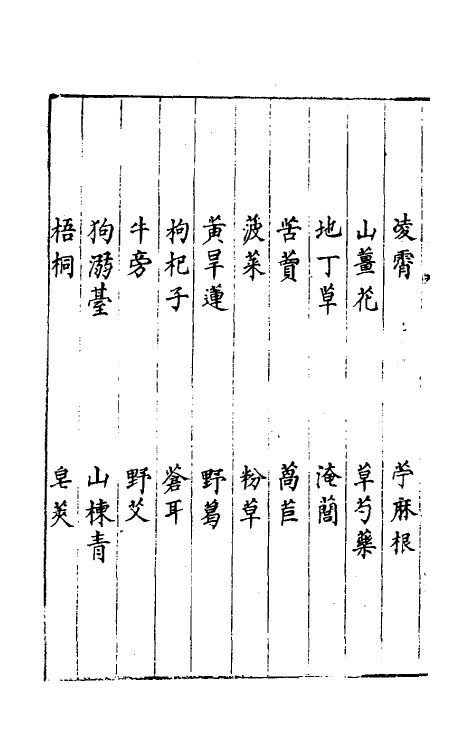 凌霄 苧麻根
山薑花 草芍藥
地丁草 淹䕡
苦蕒 萵苣
菠菜 粉草
黃旱蓮 野葛
枸杞子 蒼耳
牛旁 野艾
狗溺臺 山楝青
梧桐 皂莢